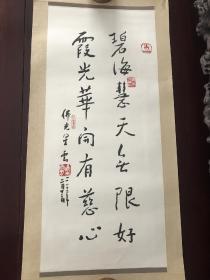 碧海慧天無限好
霞光華開有慈心
佛光星雲